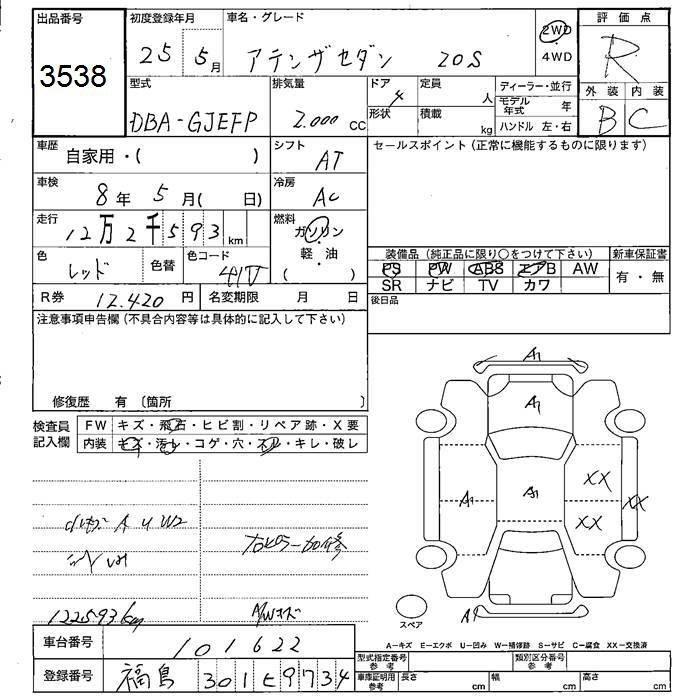 出品番号
3538
初度登録年月
25 5月
車名・グレード
アテンザセダン 20S
2WD
・
4WD
評価点
R
外装 内装
B C
型式
DBA-GJEFP
排気量
2.000 cc
ドア
4
形状
定員
人
積載
kg
ディーラー・並行
モデル年式 年
ハンドル 左・右
車歴
自家用・( )
シフト
AT
セールスポイント (正常に機能するものに限ります)
車検
8年 5月( 日)
冷房
AC
走行
12万2千593km
燃料
ガソリン
・
軽・油
( )
色
レッド
色替
色コード
41V
装備品 (純正品に限り○をつけて下さい)
PS PW ABS エアB AW
SR ナビ TV カワ
新車保証書
有・無
R券
12.420円
名変期限 月 日
後日品
注意事項申告欄 (不具合内容等は具体的に記入して下さい)
修復歴 有 〔箇所 〕
検査員
記入欄
FW キズ・飛石・ヒビ割・リペア跡・X要
内装 キズ・汚レ・コゲ・穴・スレ・キレ・破レ
A U W2
122593km
A/Wキズ
A1
A1
A1
A1
XX
XX
XX
A1
スペア
A-キズ E-エクボ U-凹み W-補修跡 S-サビ C-腐食 XX-交換済
車台番号
101622
登録番号
福島 301 セ 9734
型式指定番号
参考
類別区分番号
参考
車庫証明用
参考
長さ cm
幅 cm
高さ cm